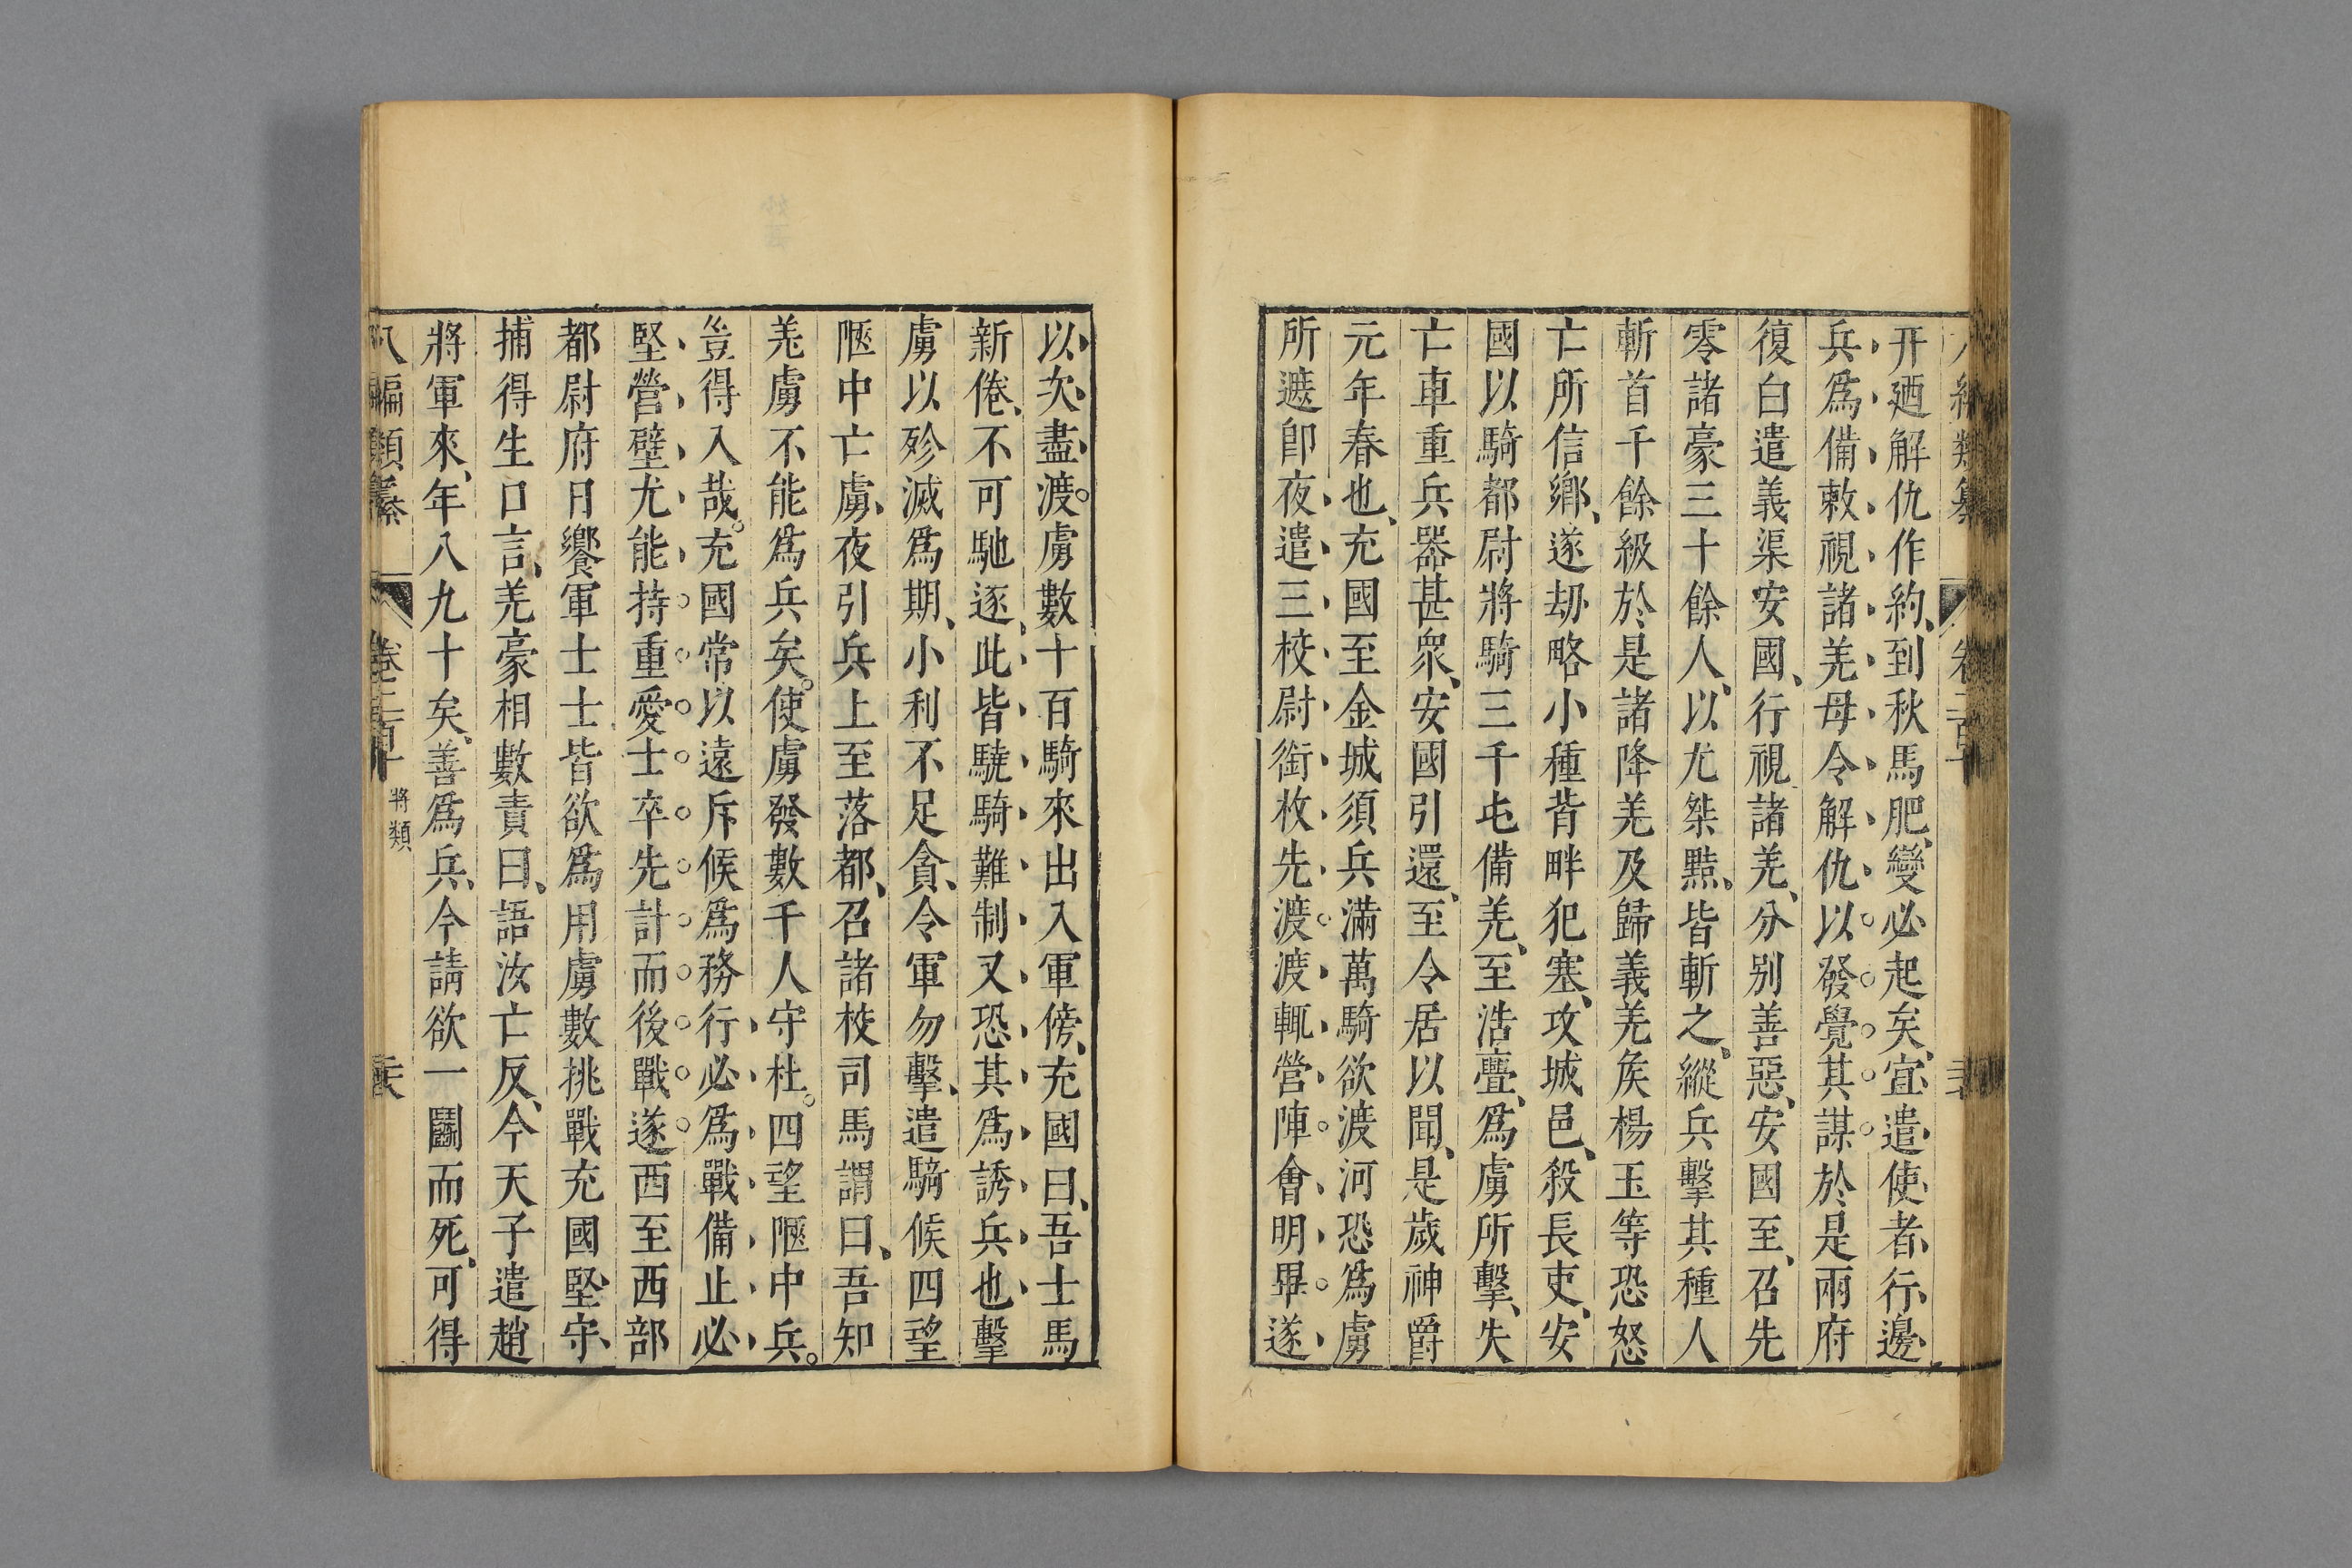 八編類纂 卷二百十
幵廼解仇作約、到秋馬肥、變必起矣、宜遣使者、行邊
兵爲備敕視諸羌毋令解仇以發覺其謀於是兩府
復白遣義渠安國、行視諸羌、分别善惡、安國至、召先
零諸豪三十餘人、以尤桀黠、皆斬之、縱兵擊其種人
斬首千餘級於是諸降羌及歸義羌矦楊玉等恐怒
亡所信鄉、遂刼略小種背畔犯塞、攻城邑、殺長吏、安
國以騎都尉將騎三千屯備羌、至浩亹、爲虜所擊、失
亡車重兵器甚衆、安國引還、至令居以聞、是歲神爵
元年春也、充國至金城須兵滿萬騎欲渡河恐爲虜
所遮卽夜遣三校尉銜枚先渡渡輒營陣會明畢遂
以次盡渡。虜數十百騎來出入軍傍、充國曰、吾士馬
新倦、不可馳逐、此皆驍騎難制又恐其爲誘兵也擊
虜以殄滅爲期、小利不足貪、令軍勿擊、遣騎候四望
陿中亡虜、夜引兵上至落都、召諸校司馬謂曰、吾知
羌虜不能爲兵矣。使虜發數千人守杜。四望陿中兵。
豈得入哉。充國常以遠斥候爲務行必爲戰備止必
堅營壁尤能持重愛士卒先計而後戰遂西至西部
都尉府日饗軍士士皆欲爲用虜數挑戰充國堅守、
捕得生口言、羌豪相數責曰、語汝亡反、今天子遣趙
將軍來、年八九十矣、善爲兵、今請欲一鬭而死、可得
八編類纂 卷二百十 將類 六